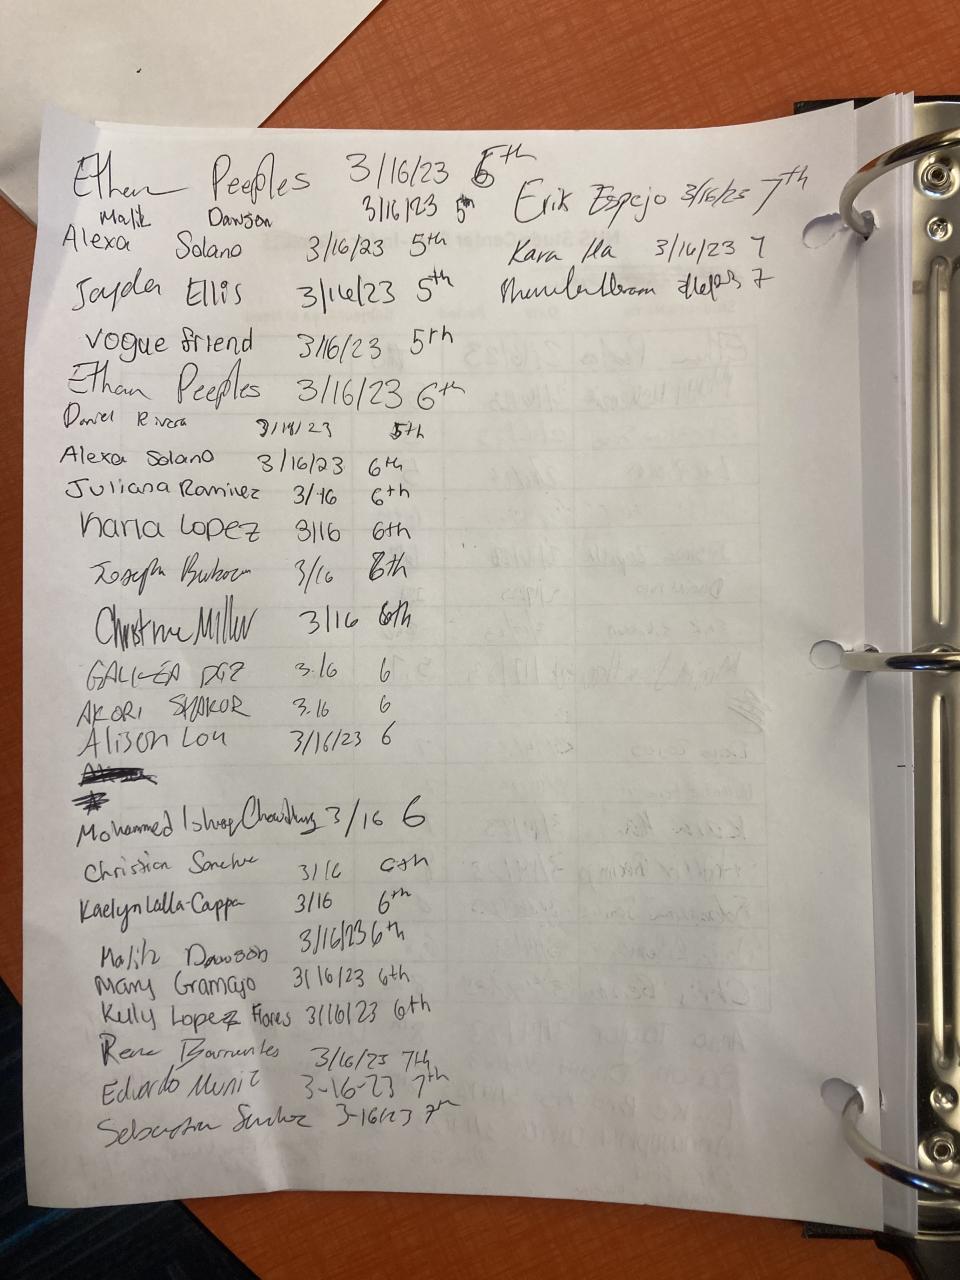 Ethan Peeples 3/16/23 5th
Malik Dawson 3/16/23 5th
Alexa Solano 3/16/23 5th
Jayden Ellis 3/16/23 5th
Vogue friend 3/16/23 5th
Ethan Peeples 3/16/23 6th
Daniel Rivera 3/16/23 5th
Alexa Solano 3/16/23 6th
Juliana Ramirez 3/16 6th
Karla Lopez 3/16 6th
Joseph 3/16 6th
Christine Miller 3/16 6th
3.16 6
AKORI SHAKOR 3.16 6
Alison Lou 3/16/23 6
Mohammed Ishraq Chowdhury 3/16 6
Christian Sanchez 3/16 6th
Kaelyn Lalla-Cappa 3/16 6th
Malik Dawson 3/16/23 6th
Mary Gramajo 3/16/23 6th
Kelly Lopez Flores 3/16/23 6th
Rene Barrientes 3/16/23 7th
Eduardo Muniz 3-16-23 7th
Sebastian Sanchez 3-16/23 7th
Erik Espejo 3/16/23 7th
Kara Ha 3/16/23 7
7